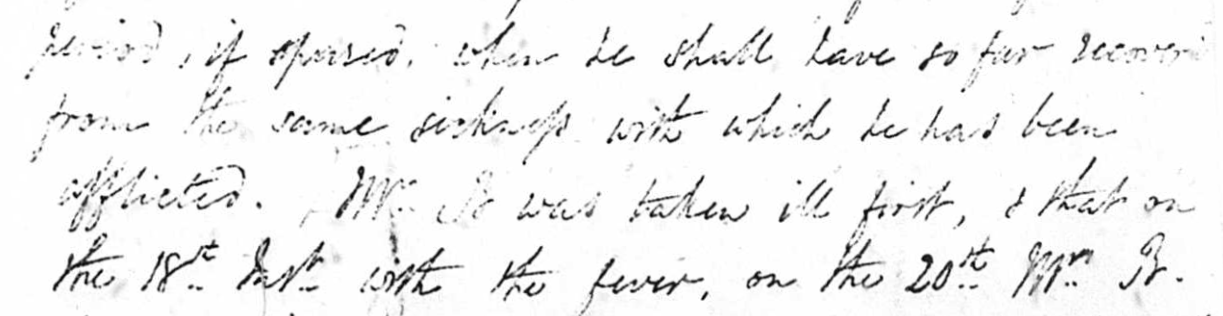 period, if spared, when he shall have so far recover
from the same sickness with which he has been
afflicted. Mr. B was taken ill first, & that on
the 18st Inst with the fever, on the 20th Mrs B.